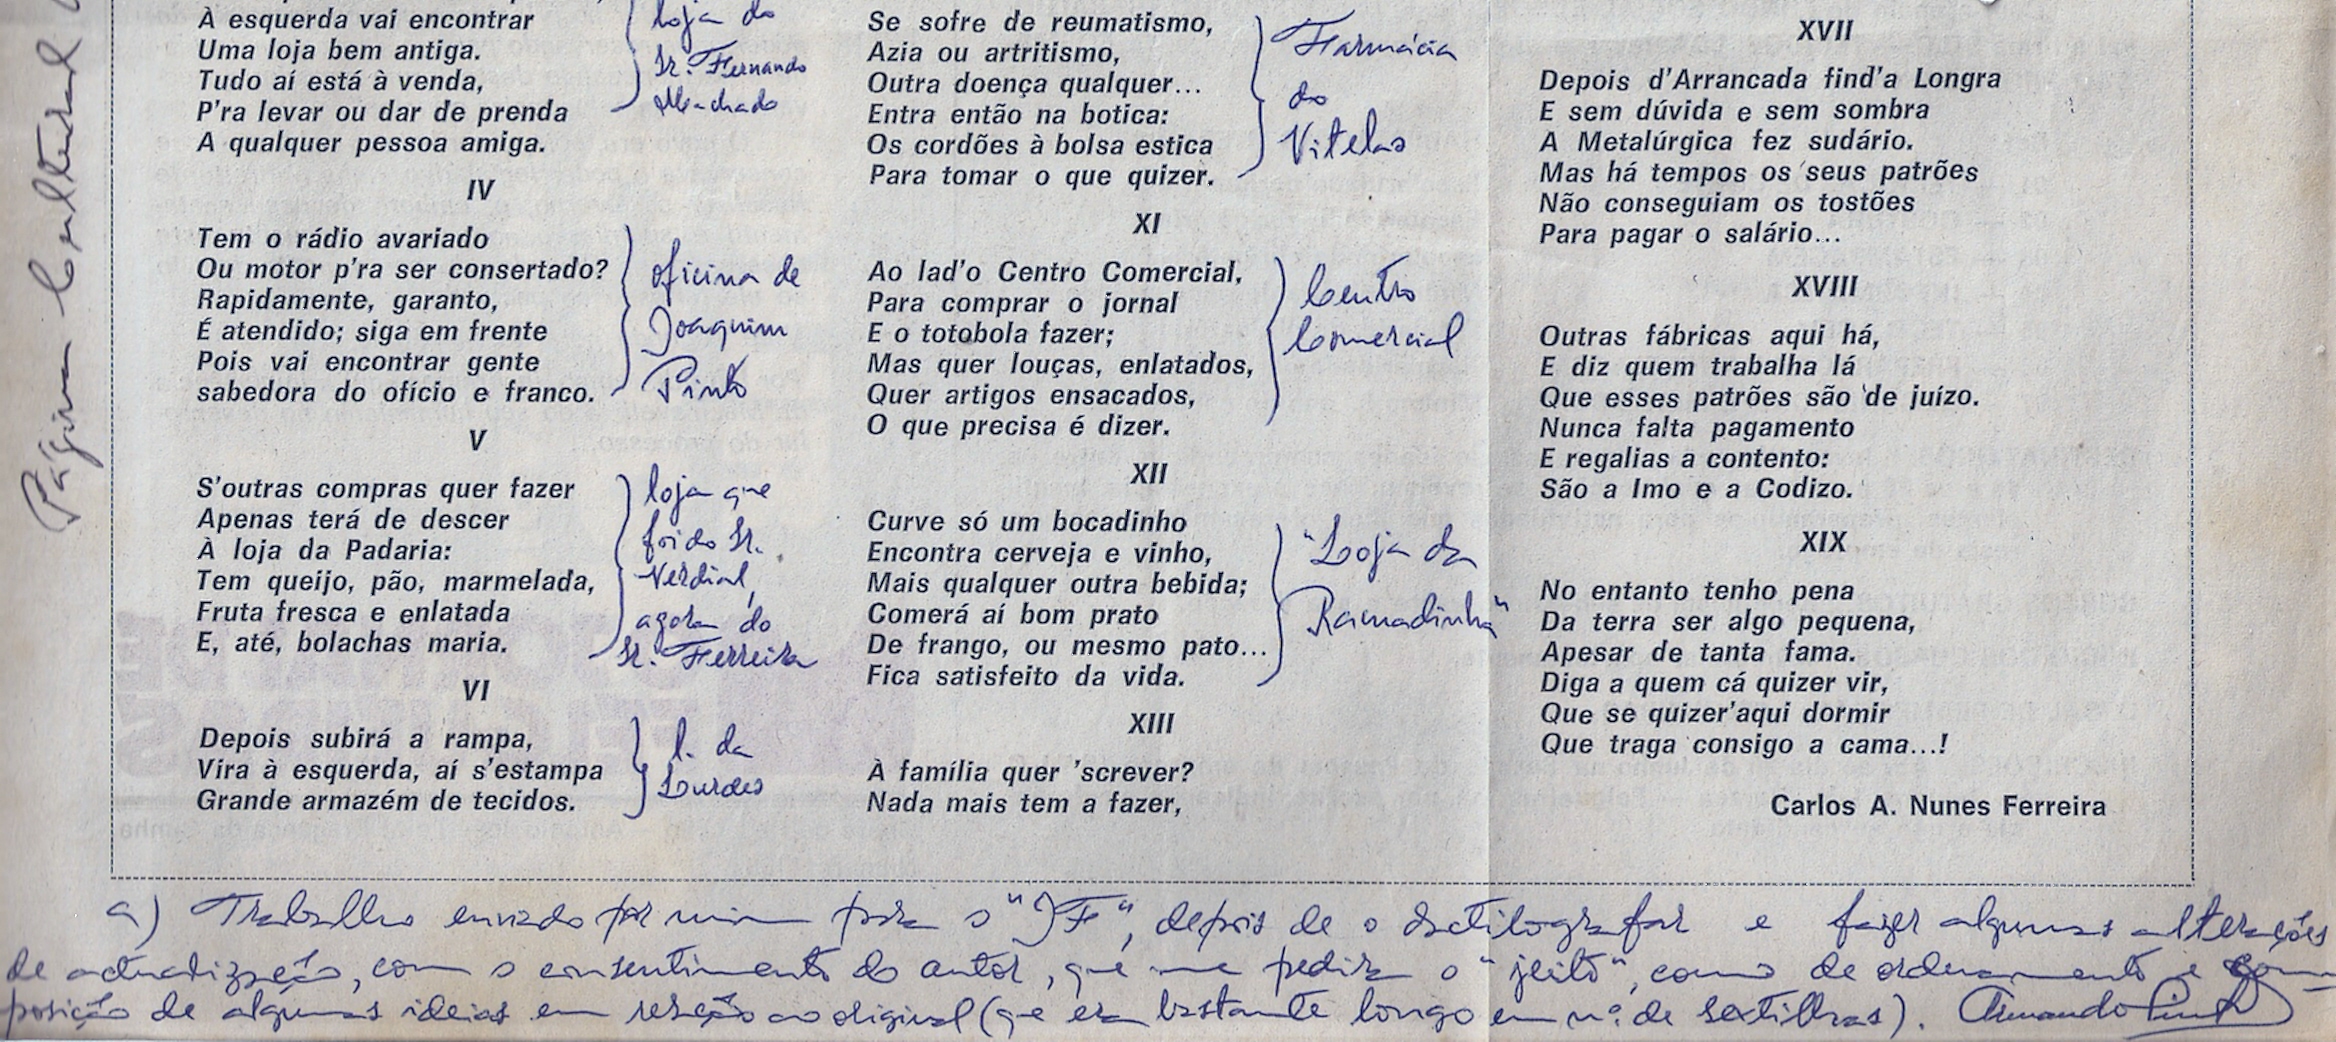 Página Cultural
À esquerda vai encontrar
Uma loja bem antiga.
Tudo aí está à venda,
P'ra levar ou dar de prenda
A qualquer pessoa amiga.
loja do
Sr. Fernando
Machado
IV
Tem o rádio avariado
Ou motor p'ra ser consertado?
Rapidamente, garanto,
É atendido; siga em frente
Pois vai encontrar gente
sabedora do ofício e franco.
oficina de
Joaquim
Pinto
V
S'outras compras quer fazer
Apenas terá de descer
À loja da Padaria:
Tem queijo, pão, marmelada,
Fruta fresca e enlatada
E, até, bolachas maria.
loja que
foi do Sr.
Verdial,
agora do
Sr. Ferreira
VI
Depois subirá a rampa,
Vira à esquerda, aí s'estampa
Grande armazém de tecidos.
l. da
Lurdes
Se sofre de reumatismo,
Azia ou artritismo,
Outra doença qualquer...
Entra então na botica:
Os cordões à bolsa estica
Para tomar o que quizer.
Farmácia
do
Vitelas
XI
Ao lad'o Centro Comercial,
Para comprar o jornal
E o totobola fazer;
Mas quer louças, enlatados,
Quer artigos ensacados,
O que precisa é dizer.
Centro
Comercial
XII
Curve só um bocadinho
Encontra cerveja e vinho,
Mais qualquer outra bebida;
Comerá aí bom prato
De frango, ou mesmo pato...
Fica satisfeito da vida.
"Loja da
Ramadinha"
XIII
À família quer 'screver?
Nada mais tem a fazer,
XVII
Depois d'Arrancada find'a Longra
E sem dúvida e sem sombra
A Metalúrgica fez sudário.
Mas há tempos os seus patrões
Não conseguiam os tostões
Para pagar o salário...
XVIII
Outras fábricas aqui há,
E diz quem trabalha lá
Que esses patrões são de juízo.
Nunca falta pagamento
E regalias a contento:
São a Imo e a Codizo.
XIX
No entanto tenho pena
Da terra ser algo pequena,
Apesar de tanta fama.
Diga a quem cá quizer vir,
Que se quizer'aqui dormir
Que traga consigo a cama...!
Carlos A. Nunes Ferreira
a) Trabalho enviado por mim para o "JF", depois de o dactilografar e fazer algumas alterações
de actualização, com o consentimento do autor, que me pedira o "jeito", como de ordenamento e com-
posição de algumas ideias em relação ao original (que era bastante longo em nº. de sextilhas). Armando Pinto